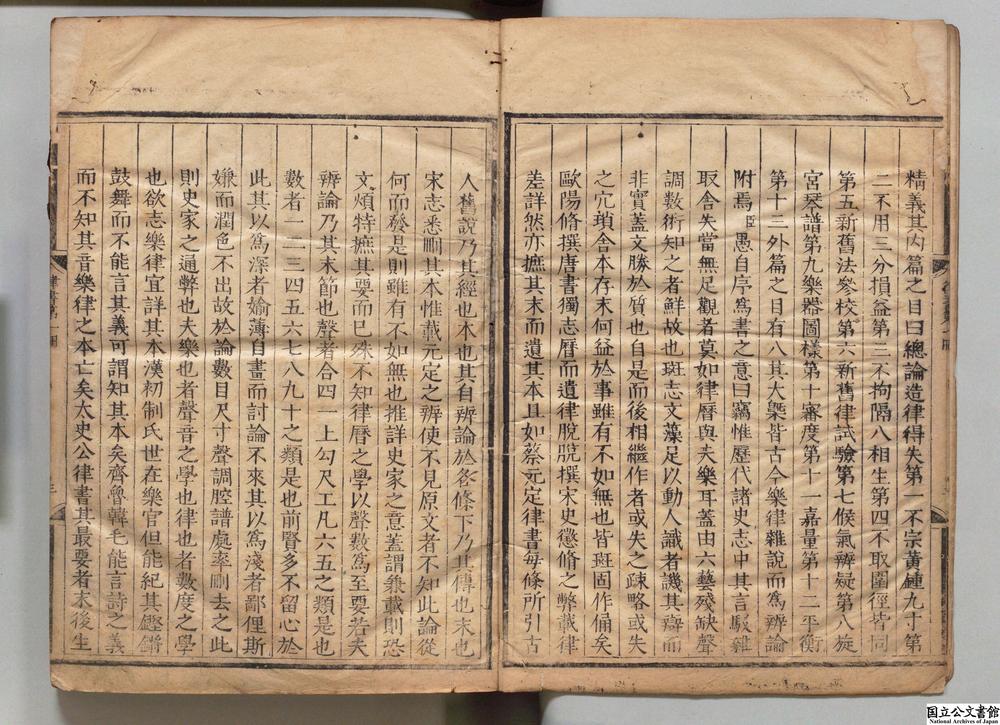 精義其內篇之目曰總論造律得失第一不宗黃鍾九寸第
二不用三分損益第三不拘隔八相生第四不取圍徑皆同
第五新舊法參校第六新舊律試驗第七候氣辨疑第八旋
宮琴譜第九樂器圖樣第十審度第十一嘉量第十二平衡
第十三外篇之目有八其大槩皆古今樂律雜說而爲辨論
附焉臣愚自序爲書之意曰竊惟歷代諸史志中其言駁雜
取舍失當無足觀者莫如律曆與夫樂耳蓋由六藝殘缺聲
調數術知之者鮮故也班志文藻足以動人識者譏其辭而
非實蓋文勝於質也自是而後相繼作者或失之疎略或失
之宂瑣舍本存末何益於事雖有不如無也皆班固作俑矣
歐陽脩撰唐書獨志曆而遺律脫脫撰宋史懲脩之弊載律
差詳然亦摭其末而遺其本且如蔡元定律書每條所引古
人舊說乃其經也本也其自辨論於各條下乃其傳也末也
宋志悉刪其本惟載元定之辨使不見原文者不知此論從
何而發是則雖有不如無也推詳史家之意蓋謂兼載則恐
文煩特摭其要而巳殊不知律曆之學以聲數爲至要若夫
辨論乃其末節也聲者合四一上勾尺工凡六五之類是也
數者一二三四五六七八九十之類是也前賢多不留心於
此其以爲深者婾薄自畫而討論不來其以爲淺者鄙俚斯
嫌而潤色不出故於論數目尺寸聲調腔譜處率刪去之此
則史家之通弊也夫樂也者聲音之學也律也者數度之學
也欲志樂律宜詳其本漢初制氏世在樂官但能紀其鏗鏘
鼓舞而不能言其義可謂知其本矣齊魯韓毛能言詩之義
而不知其音樂律之本亡矣太史公律書其最要者末後生
国立公文書館
National Archives of Japan